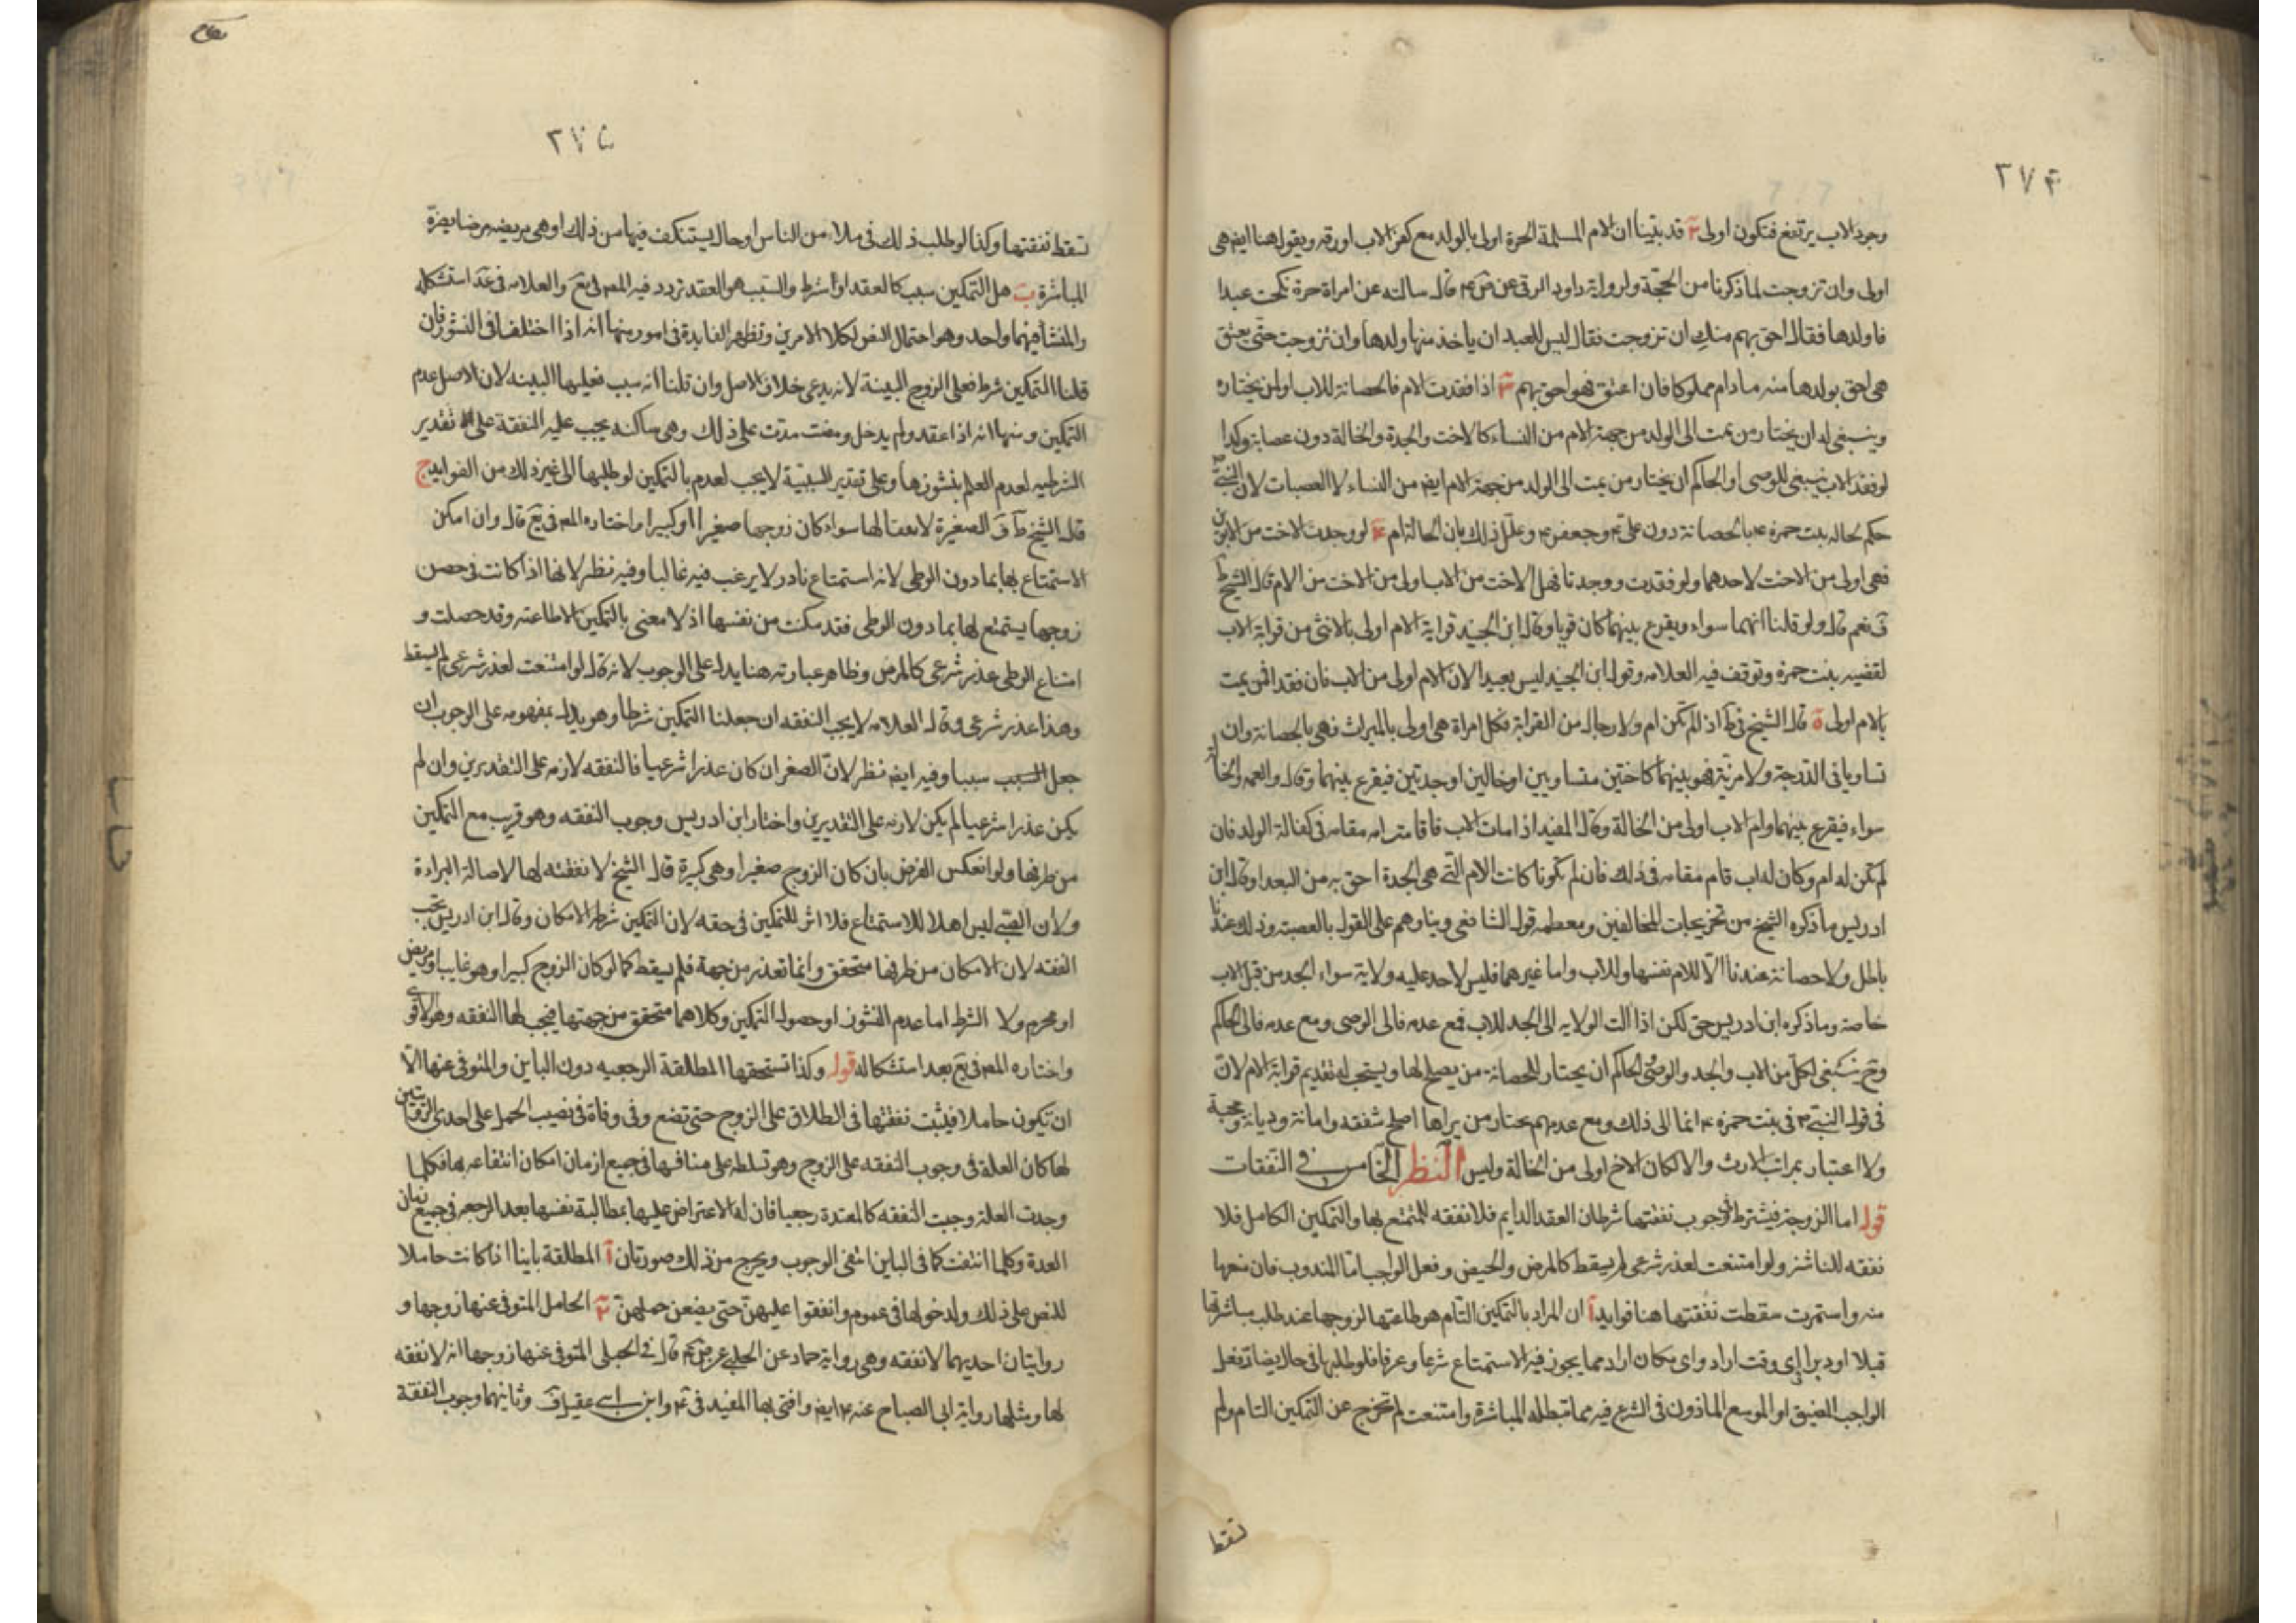 ٢٧۴
وجود الاب يرتفع فتكون اولى ٢ قد بتينا ان الام المسلمة الحرة اولى بالولد مع كفر الاب اورقه ويقول هنا ايض هى
اولى وان تزوجت لما ذكرنا من الحجة ولرواية داود الرقى عن ص ع قال سالته عن امراة حرة نكحت عبدا
فاولدها فقال احق بهم منك ان تزوجت فقال ليس للعبد ان ياخذ منها ولدها وان تزوجت حتى يعتق
هى احق بولدها منه مادام مملوكا فان اعتق فهو احق بهم ٣ اذا فقدت الام فالحضانة للاب او لمن يختاره
وينبغى له ان يختار من يمت الى الولد من جهة الام من النساء كالاخت والجدة والخالة دون عصابة وكذا
لو فقد الاب ينبغى للوصى او الحاكم ان يختار من يمت الى الولد من جهة الام ايض من النساء لا العصبات لان النبى ص
حكم لخالة بنت حمزة ع بالحضانة دون على ع وجعفر ع وعلل ذلك بان الخالة ام ۴ لو وجدت الاخت من الابوين
فهى اولى من الاخت لاحدهما ولو فقدت ووجدتا فهل الاخت من الاب اولى من الاخت من الام قال الشيخ ط
ف نعم قال ولو قلنا انهما سواء ويقرع بينهما كان قويا وقال ابن الجنيد قرابة الام اولى بالانثى من قرابة الاب
لقضيه بنت حمزة وتوقف فيه العلامه وقول ابن الجنيد ليس بعيد الان الام اولى من الاب فان فقدا فمن يمت
بالام اولى ٥ قال الشيخ فى ط اذ لم تكن ام ولا رجال من القرابة فكل امراة هى اولى بالميراث فهى بالحضانة وان
تساويا فى الدرجة ولا مزية فهو بينهما كاختين متساويين او خالين او جدتين فيقرع بينهما وقال والعمه والخالة
سواء فيقرع بينهما وام الاب اولى من الخالة وقال المفيد اذا مات الاب فاقامت امه مقامه فى كفالة الولد فان
لم تكن له ام وكان له اب قام مقامه فى ذلك فان لم يكونا كانت الام التى هى الجدة احق به من البعدا وقال ابن
ادريس ما ذكره الشيخ من تخريجات المخالفين ومعظمه قول الشافعى وبناوهم على القول بالعصبة وذلك عندنا
باطل ولا حضانة عندنا الا للام نفسها وللاب واما غيرهما فليس لاحد عليه ولاية سواء الجد من قبل الاب
خاصة وما ذكره ابن ادريس حق لكن اذا الت الولايه الى الجد للاب فمع عدمه فالى الوصى ومع عدمه فالى الحاكم
وح ينبغى لكل من الاب والجد والوصى والحاكم ان يختار للحضانة من يصلح لها ويستحب له تقديم قرابة الام لان
فى قول النبى ص فى بنت حمزه ع انما الى ذلك ومع عدمهم يختار من يراها اصلح شفقه وامانة وديانة ومحبة
ولا اعتبار بمراتب الارث والا لكان الاخ اولى من الخالة وليس النظر الخامس فى النفقات
قوله اما الزوجة فيشترط فى وجوب نفقتها شرطان العقد الدايم فلا نفقه للمتمتع بها والتمكين الكامل فلا
نفقه للناشز ولو امتنعت لعذر شرعى لم يسقط كالمرض والحيض وفعل الواجب اما المندوب فان منعها
منه واستمرت سقطت نفقتها هنا فوايد ا ان المراد بالتمكين التام هو طاعتها لزوجها عند طلب مباشرتها
قبلا او دبرا اى وقت اراد واى مكان اراد مما يجوز فيه الاستمتاع شرعا وعرفا فلو طلبها فى حال يضاد فعل
الواجب المضيق او الموسع الماذون فى الشرع فيه مما تبطله المباشرة وامتنعت لم تخرج عن التمكين التام ولم
تسقط
نكاح
٢٧۵
تسقط نفقتها وكذا لو طلب ذلك فى ملاء من الناس او حال يستنكف فيها من ذلك او هى مريضه مرضا يضره
المباشرة ب هل التمكين سبب كالعقد او شرط والسبب هو العقد تردد فيه المص فى يع والعلامه فى عد استشكله
والمنشأ فيهما واحد وهو احتمال النص لكلا الامرين وتظهر الفايدة فى امور منها انه اذا اختلفا فى النشوز فان
قلنا التمكين شرط فعلى الزوج البينة لانه يدعى خلاف الاصل وان قلنا انه سبب فعليها البينه لان الاصل عدم
التمكين ومنها انه اذا عقد ولم يدخل ومضت مدة على ذلك وهى ساكنه يجب عليه النفقة على تقدير
الشرطيه لعدم العلم بنشوزها وعلى تقدير السببية لا يجب لعدم بالتمكين لو طلبها الى غير ذلك من الفوايد ج
قال الشيخ ط ف الصغيرة لا نفقة لها سواء كان زوجها صغيرا او كبيرا واختاره المص فى يع قال وان امكن
الاستمتاع بها بما دون الوطى لانه استمتاع نادر لا يرغب فيه غالبا وفيه نظر لانها اذا كانت فى حصن
زوجها يستمتع لها بما دون الوطى فقد مكنت من نفسها اذ لا معنى بالتمكين الا طاعته وقد حصلت و
امتناع الوطى عذر شرعى كالمرض وظاهر عبارته هنا يدل على الوجوب لانه قال لو امتنعت لعذر شرعى لم يسقط
وهذا عذر شرعى وقال العلامه لا يجب النفقه ان جعلنا التمكين شرطا وهو يدل بمفهومه على الوجوب ان
جعل السبب سببا وفيه ايض نظر لان الصغر ان كان عذرا شرعيا فالنفقه لازمه على التقديرين وان لم
يكن عذرا شرعيا لم يكن لازمه على التقديرين واختار ابن ادريس وجوب النفقه وهو قريب مع التمكين
من طرفها ولو انعكس الفرض بان كان الزوج صغيرا وهى كبيرة قال الشيخ لا نفقه لها لاصالة البراءة
ولان الصبى ليس اهلا للاستمتاع فلا اثر للتمكين فى حقه لان التمكين شرطه الامكان وقال ابن ادريس تجب
النفقه لان الامكان من طرفها متحقق وانما تعذر من جهة فلم يسقط كما لو كان الزوج كبيرا وهو غايب او مريض
او محرم ولا الشرط اما عدم النشوز او حصول التمكين وكلاهما متحقق من جهتها فيجب لها النفقه وهو الاقوى
واختاره المص فى يع بعد استشكاله قوله وكذا تستحقها المطلقة الرجعيه دون الباين والمتوفى عنها الا
ان تكون حاملا فيثبت نفقتها فى الطلاق على الزوج حتى تضع وفى وفاة فى نصيب الحمل على احدى الروايتين
لها كان العلة فى وجوب النفقه على الزوج وهو تسلطه على منافعها فى جميع ازمان امكان انتفاعه بها فكلما
وجدت العلة وجبت النفقه كالمعتدة رجعيا فان له الاعتراض عليها بمطالبة نفسها بعد الرجعه فى جميع زمان
العدة وكلما انتفت كما فى الباين انتفى الوجوب ويخرج من ذلك صورتان ا المطلقة باينا اذا كانت حاملا
للنص على ذلك ولدخولها فى عموم وانفقوا عليهن حتى يضعن حملهن ٢ الحامل المتوفى عنها زوجها و
روايتان احديهما لا نفقه وهى رواية حماد عن الحلبى عن ص ع قال فى الحبلى المتوفى عنها زوجها انه لا نفقه
لها ومثلها رواية ابى الصباح عنه ع ايض وافتى بها المفيد فى وابن ابى عقيل وثانيهما وجوب النفقة